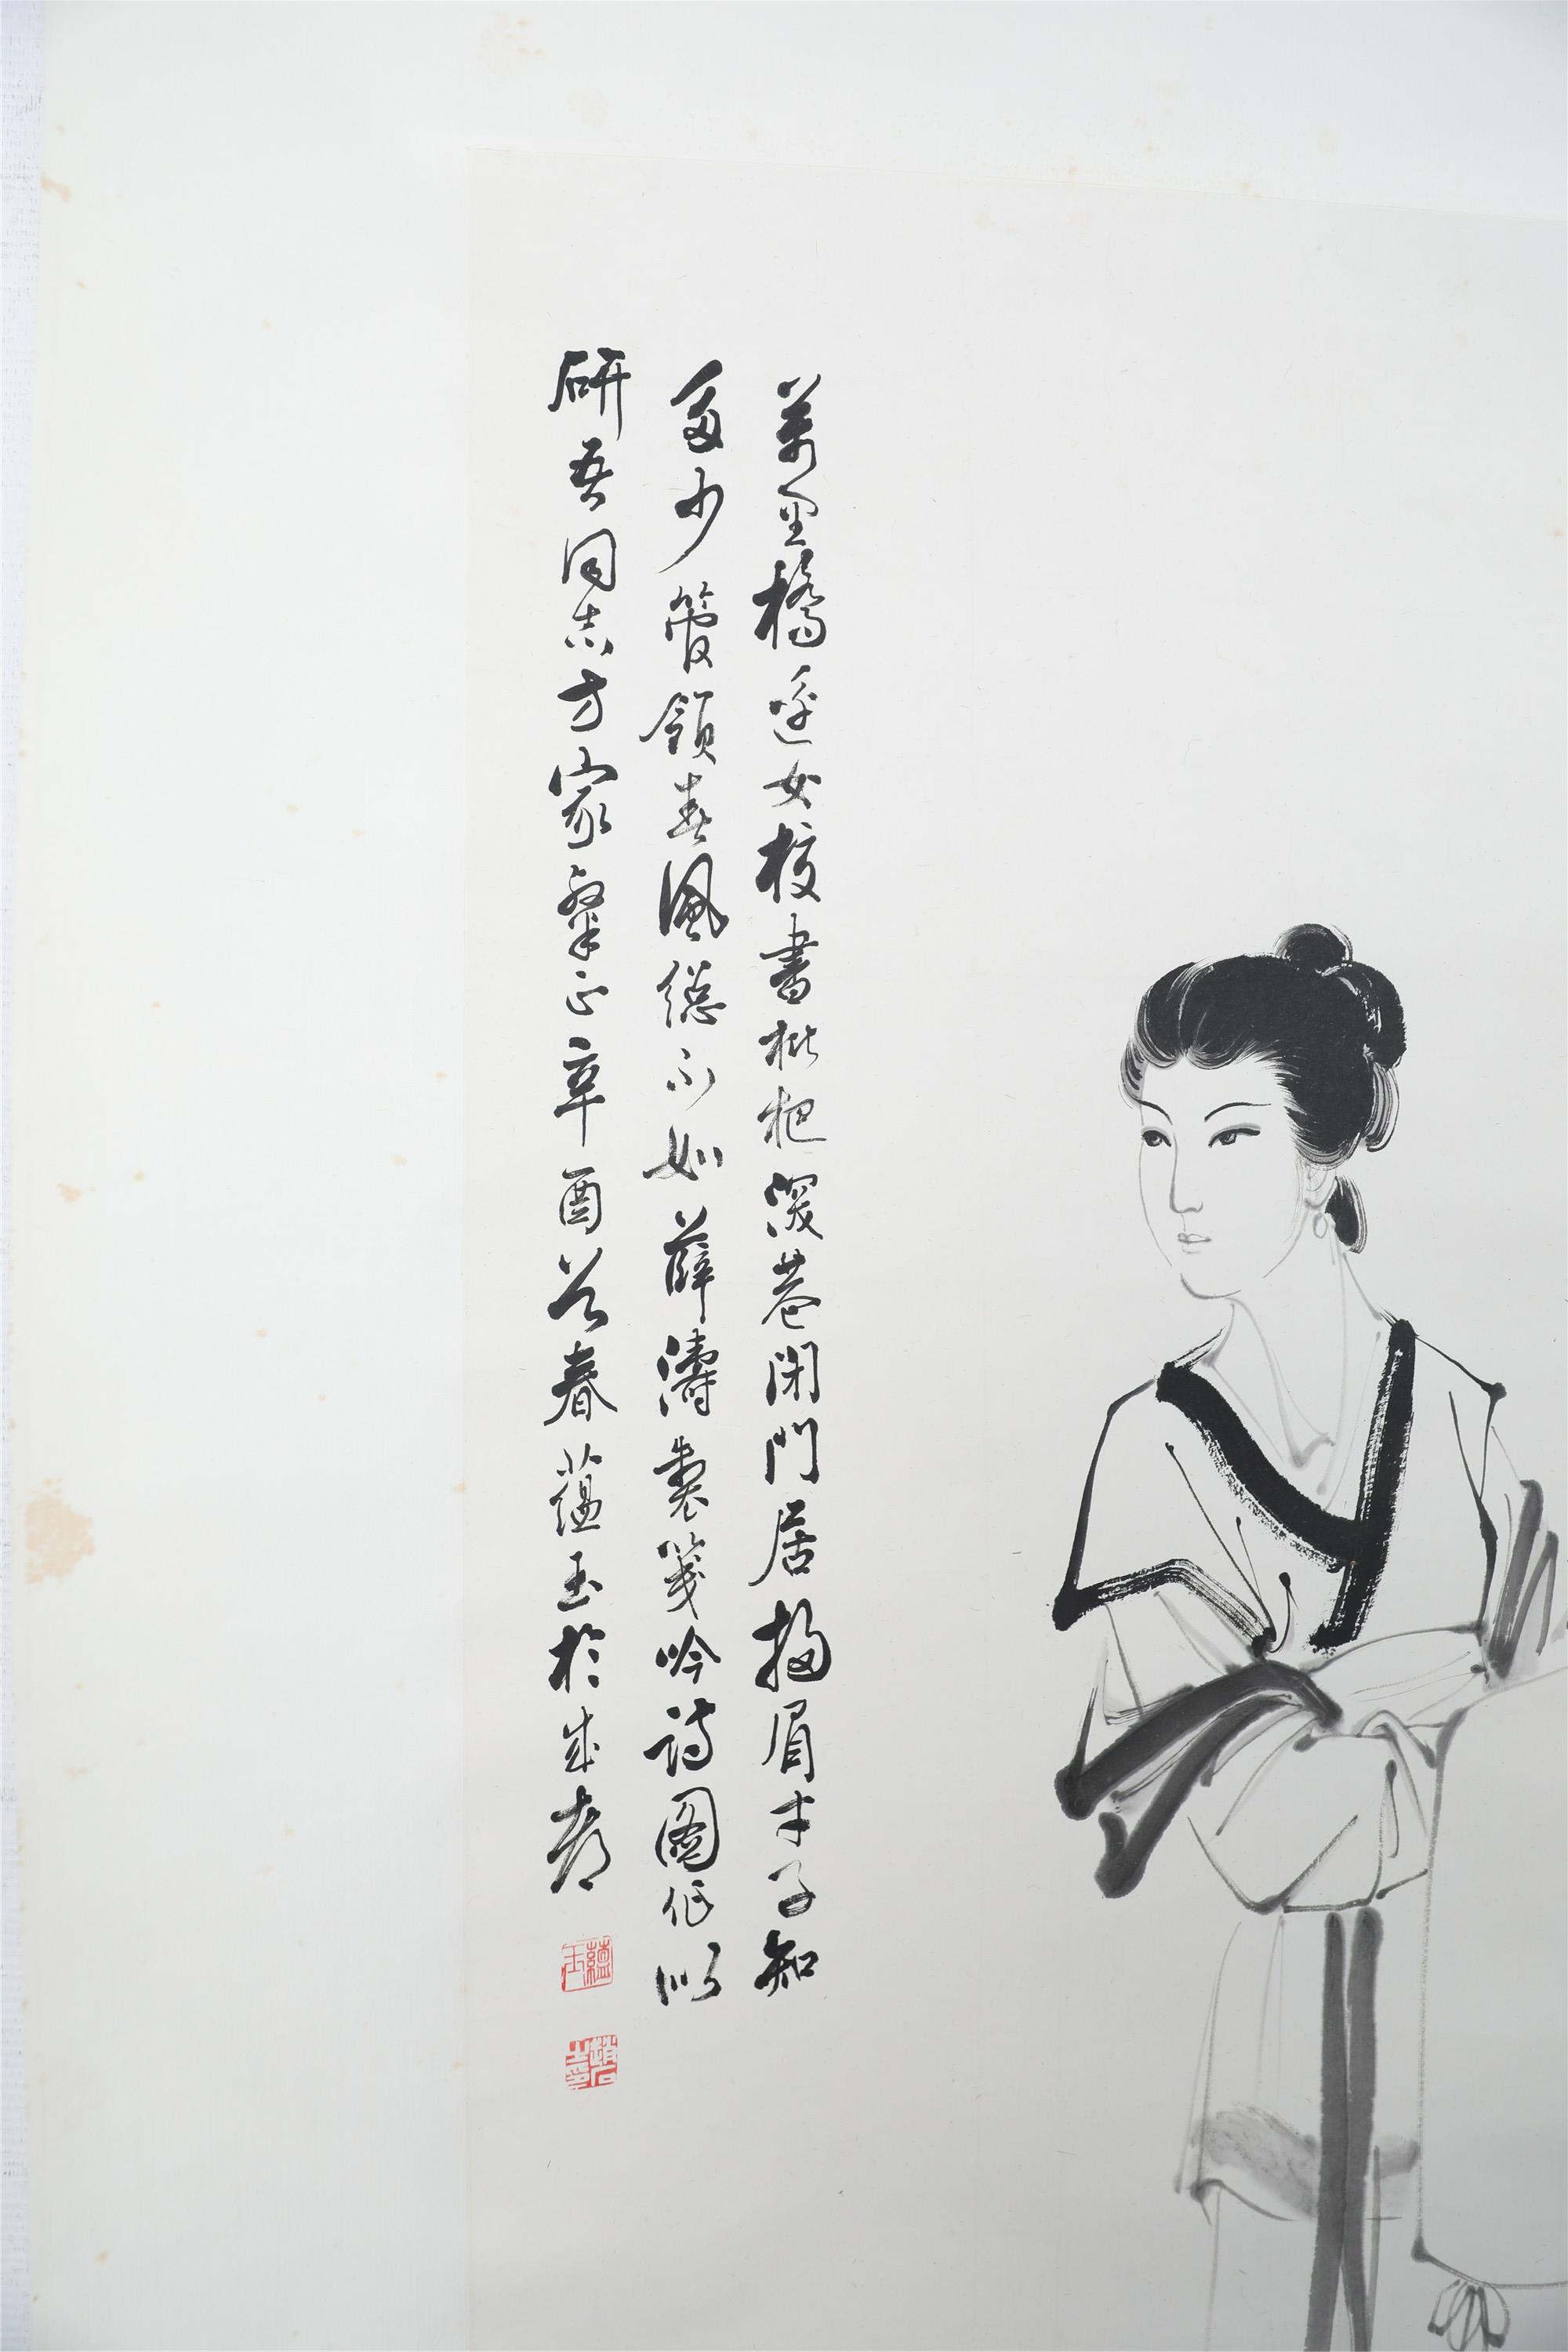 萬里橋邊女校書枇杷深巷閉門居掃眉才子知
多少管領春風總不如薛濤製箋吟詩圖作以
研吾同志方家粲正辛酉首春蘊玉於成都
蘊玉